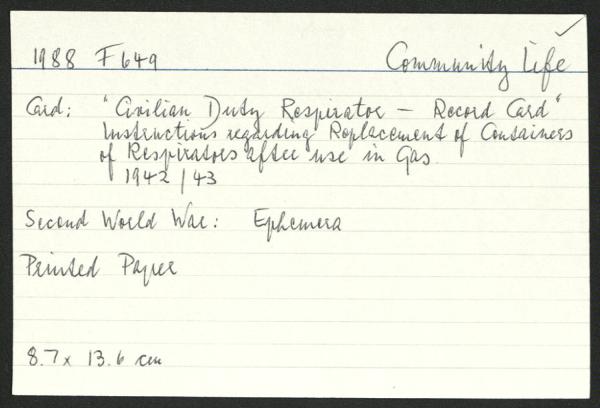 1988 F649 Community Life
Card: "Civilian Duty Respirator – Record Card"
Instructions regarding Replacement of Containers
of Respirators after use in Gas.
1942/43
Second World War: Ephemera
Printed Paper
8.7 x 13.6 cm